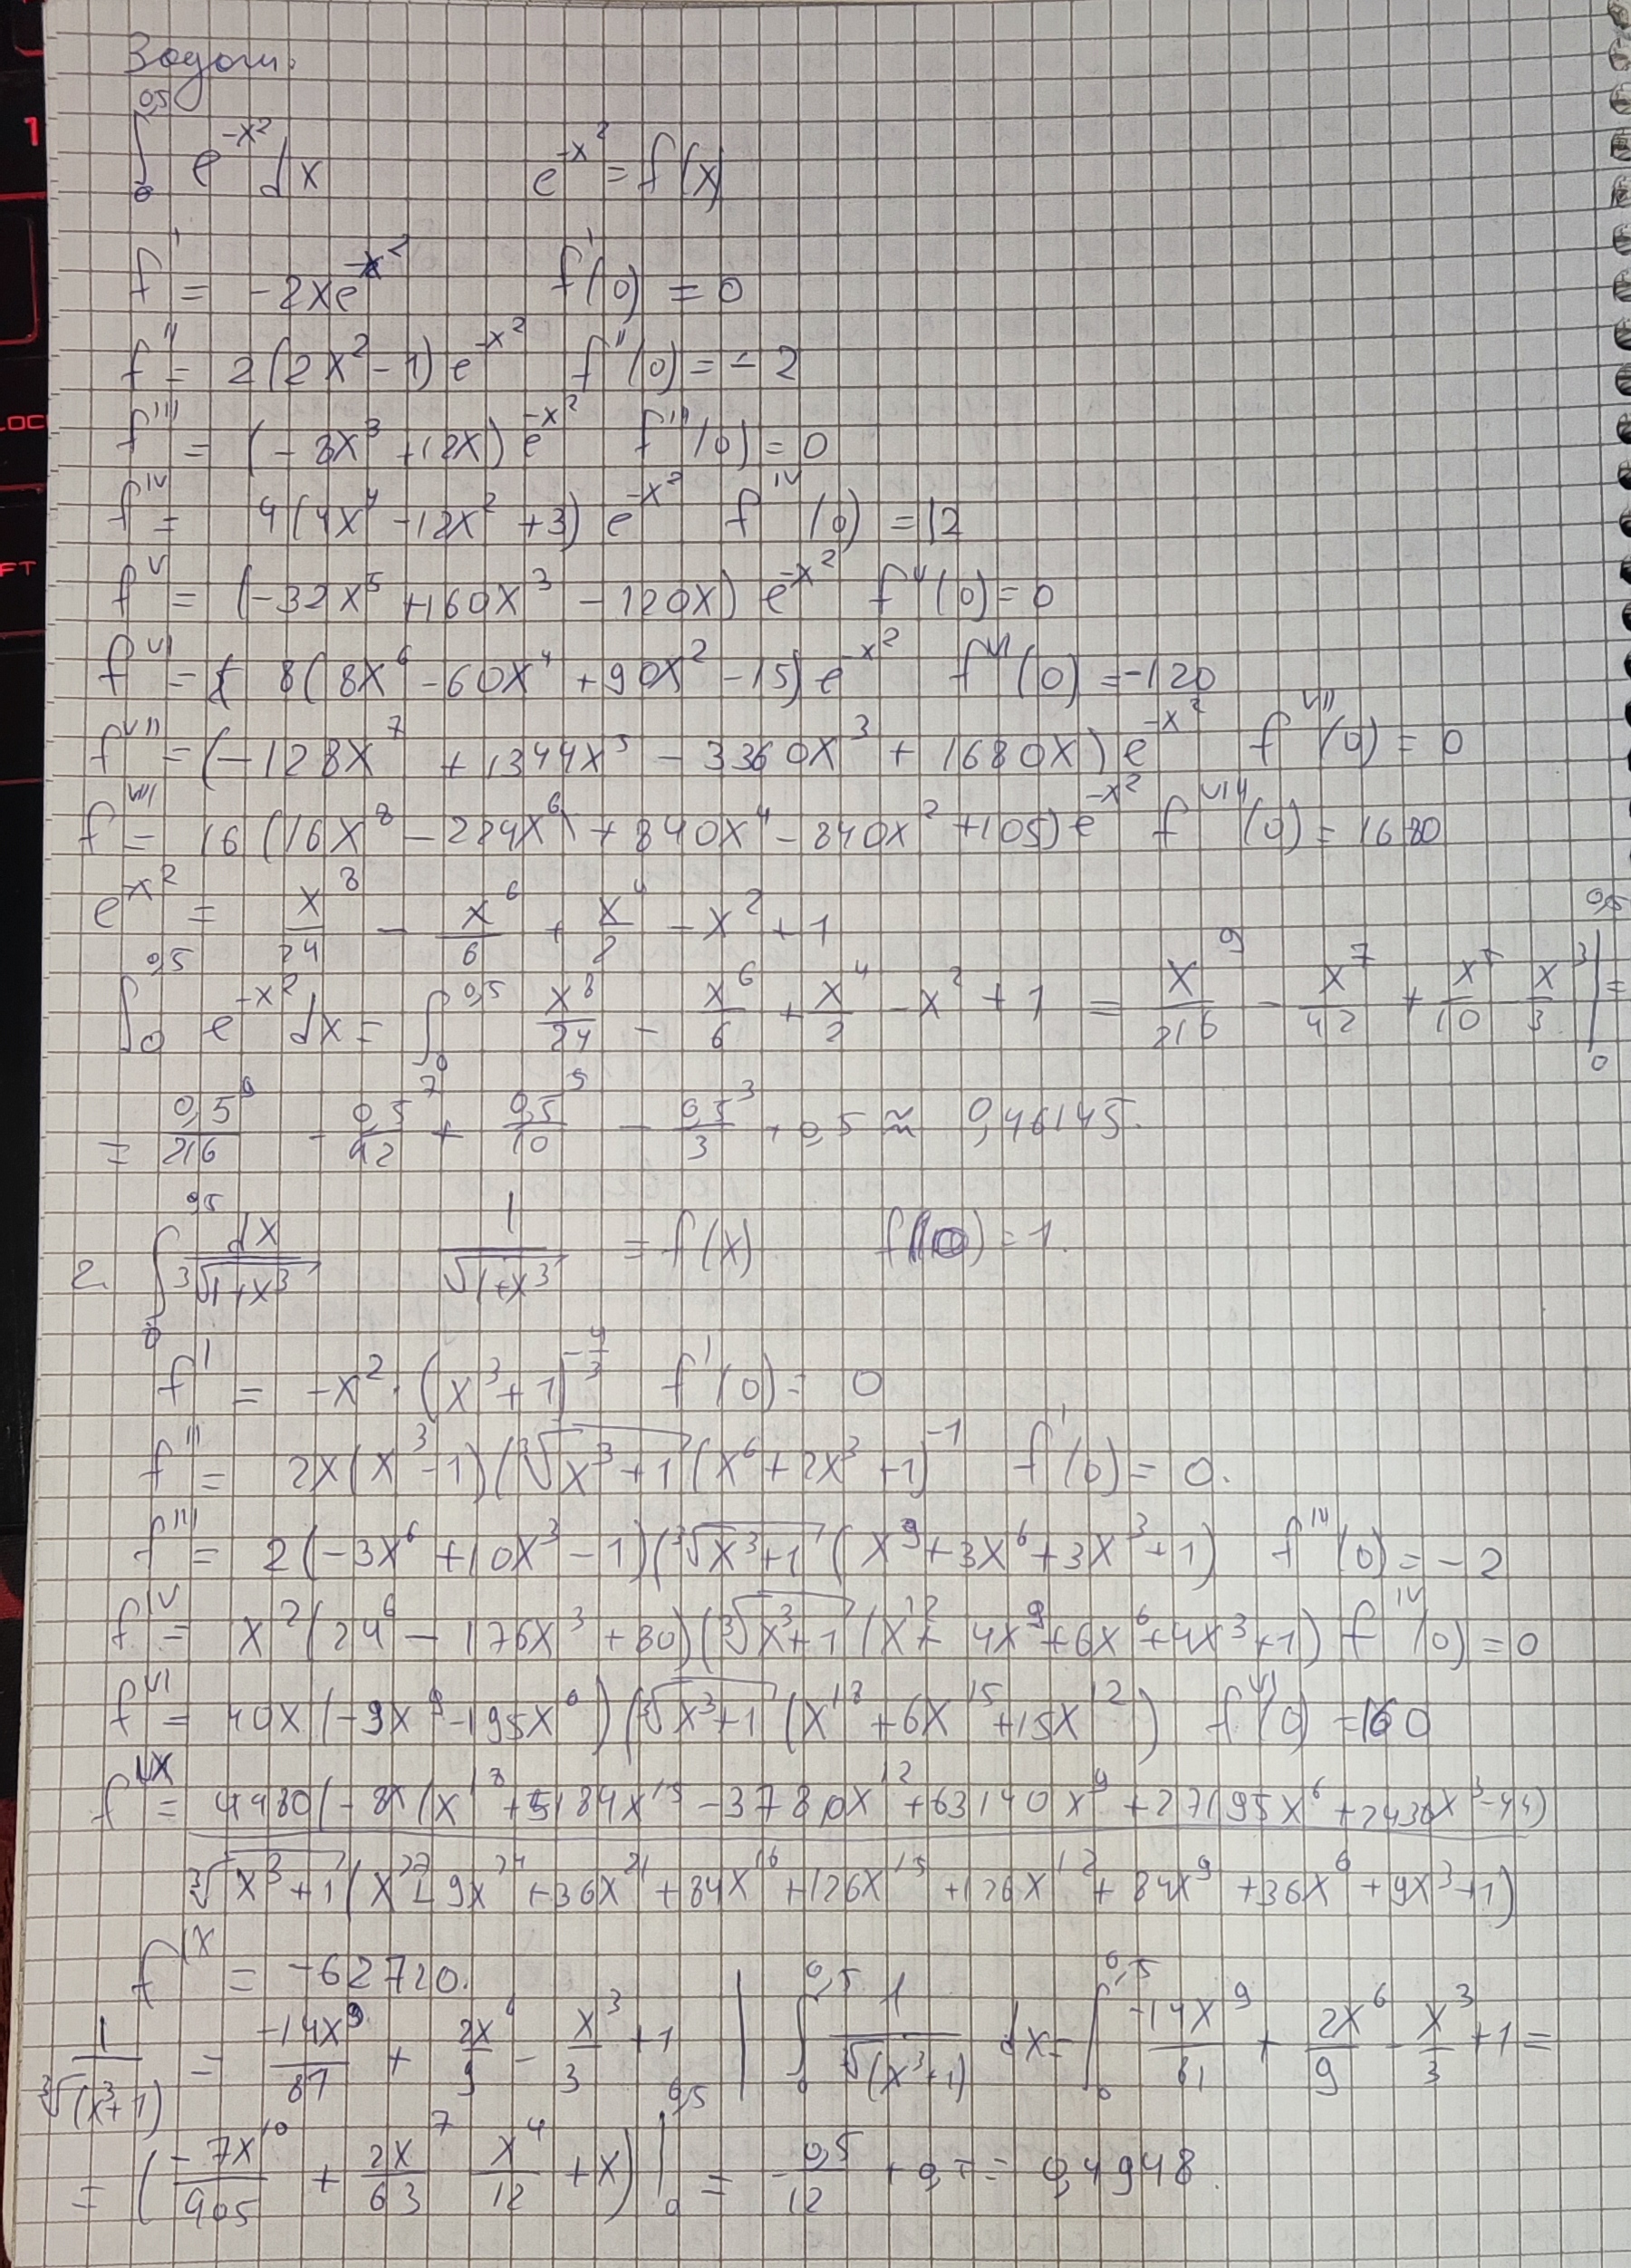 1
LOC
FT
∫₀^0,5 e^-x² dx e^-x² = f(x)
f' = -2xe^-x² f'(0) = 0
f'' = 2(2x²-1)e^-x² f''(0) = -2
f''' = (-8x³+12x)e^-x² f'''(0) = 0
f^IV = 4(4x⁴-12x²+3)e^-x² f^IV(0) = 12
f^V = (-32x⁵+160x³-120x)e^-x² f^V(0) = 0
f^VI = 8(8x⁶-60x⁴+90x²-15)e^-x² f^VI(0) = -120
f^VII = (-128x⁷+1344x⁵-3360x³+1680x)e^-x² f^VII(0) = 0
f^VIII = 16(16x⁸-224x⁶+840x⁴-840x²+105)e^-x² f^VIII(0) = 1680
e^-x² = x⁸/24 - x⁶/6 + x⁴/2 - x² + 1
∫₀^0,5 e^-x² dx = ∫₀^0,5 x⁸/24 - x⁶/6 + x⁴/2 - x² + 1 = x⁹/216 - x⁷/42 + x⁵/10 - x³/3 |₀^0,5 =
= 0,5⁹/216 - 0,5⁷/42 + 0,5⁵/10 - 0,5³/3 + 0,5 ≈ 0,46145.
2. ∫₀^0,5 dx/³√(1+x³) 1/√(1+x³) = f(x) f(0) = 1.
f' = -x²·(x³+1)^-4/3 f'(0) = 0
f'' = 2x(x³-1)(³√(x³+1)(x⁶+2x³+1)^-1 f'(0) = 0.
f''' = 2(-3x⁶+10x³-1)(³√(x³+1)(x⁹+3x⁶+3x³+1) f'''(0) = -2
f^IV = x²(24⁶-176x³+80)(³√(x³+1)(x¹²+4x⁹+6x⁶+4x³+1) f^IV(0) = 0
f^VI = 40x(-9x⁹-195x⁶)(³√(x³+1)(x¹⁸+6x¹⁵+15x¹²) f^VI(0) = 160
f^IX = 4480(-8x(x¹⁸+5184x¹⁵-3780x¹²+63140x⁹+27(95x⁶+2430x³-44)
³√(x³+1)(x²⁷+9x²⁴+36x²¹+84x¹⁸+126x¹⁵+126x¹²+84x⁹+36x⁶+9x³+1)
f^IX = -62720.
1/³√(x³+1) = -14x⁹/81 + 2x⁶/9 - x³/3 + 1 | ∫₀^0,5 1/³√(x³+1) dx = ∫₀^0,5 -14x⁹/81 + 2x⁶/9 - x³/3 + 1 =
= (-7x¹⁰/405 + 2x⁷/63 - x⁴/12 + x)|₀^0,5 = -0,5/12 + 0,5 = 0,4948.